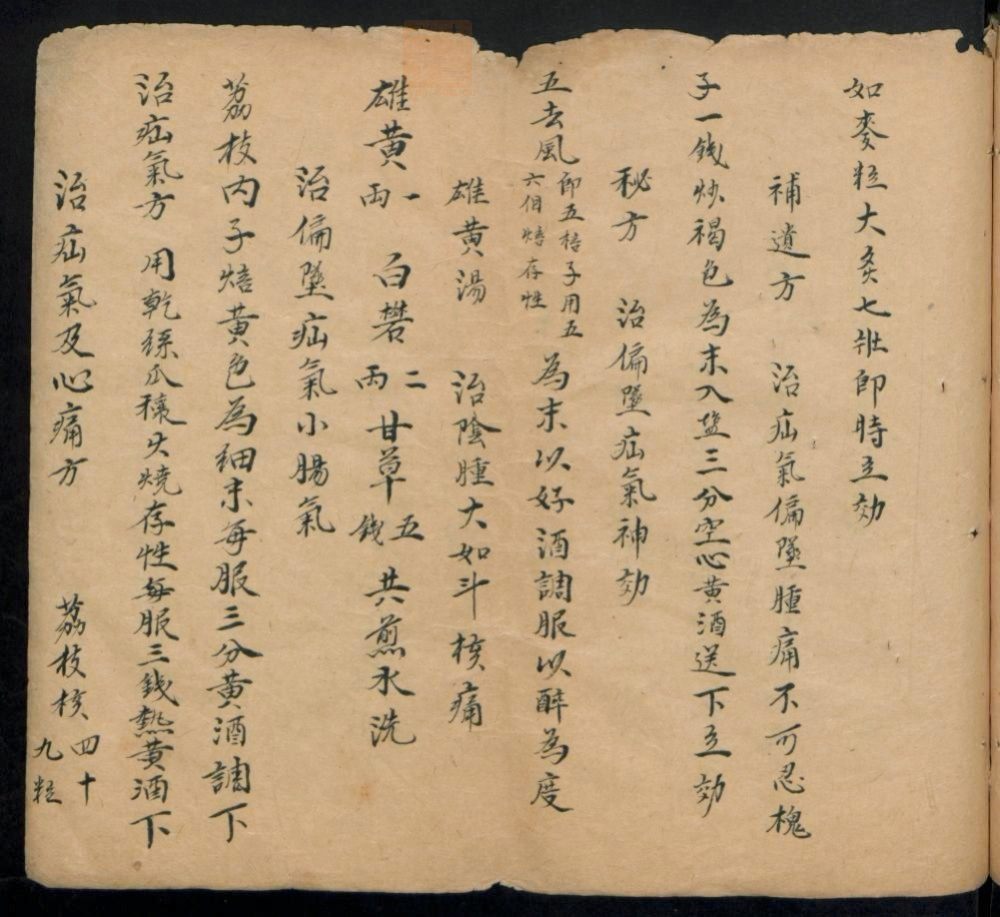 如麥粒大灸七壯即時立効
補遺方 治疝氣偏墜腫痛不可忍槐
子一錢炒褐色為末入鹽三分空心黃酒送下立効
秘方 治偏墜疝氣神効
五去風 即五棓子用五六個焙存性 為末以好酒調服以醉為度
雄黃湯 治陰腫大如斗核痛
雄黃一兩 白礬二兩 甘草五錢 共煎水洗
治偏墜疝氣小腸氣
荔枝内子焙黃色為細末每服三分黃酒調下
治疝氣方 用乾絲瓜穰火燒存性每服三錢熱黃酒下
治疝氣及心痛方 荔枝核四十九粒